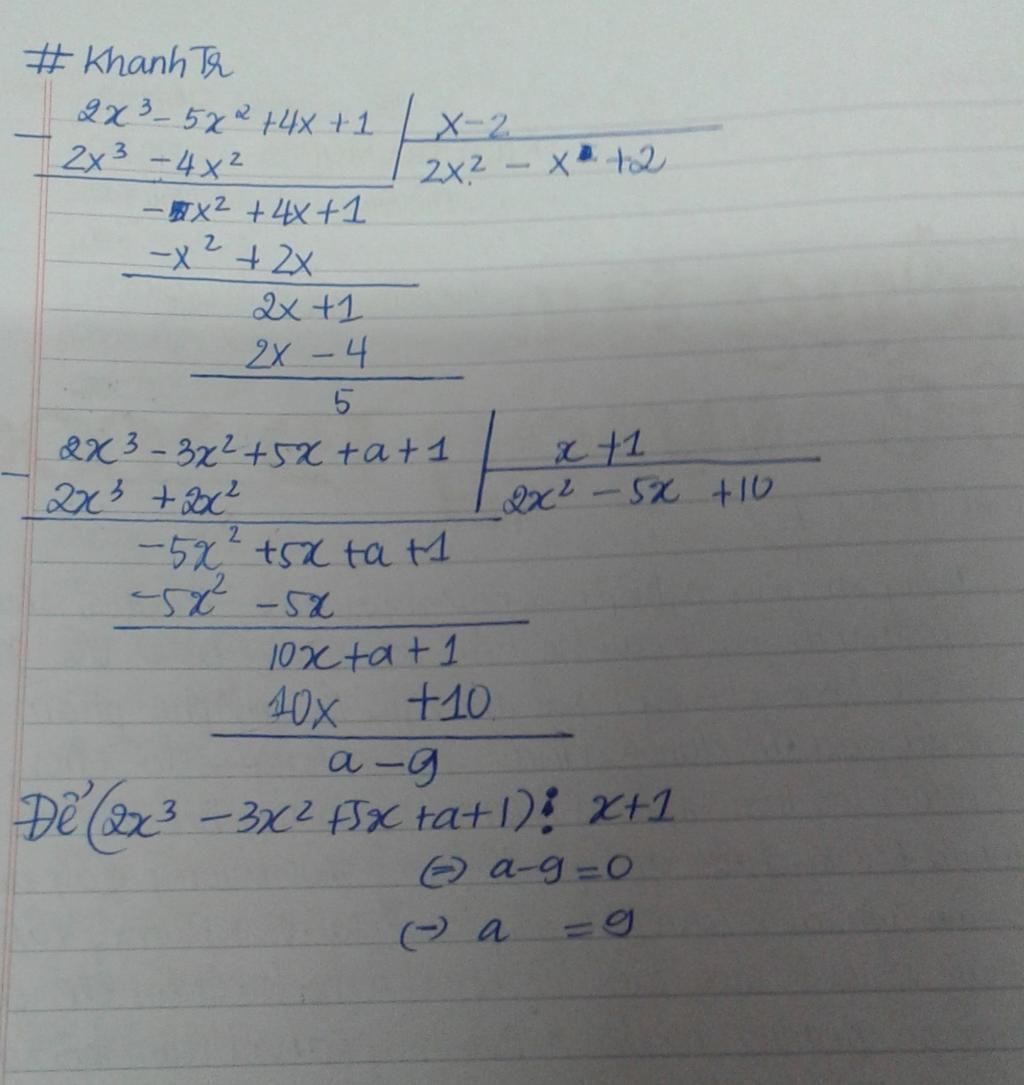 # Khanh Tr
2x³ - 5x² + 4x + 1 | x - 2
2x³ - 4x² | 2x² - x + 2
- x² + 4x + 1
- x² + 2x
2x + 1
2x - 4
5
2x³ - 3x² + 5x + a + 1 | x + 1
2x³ + 2x² | 2x² - 5x + 10
-5x² + 5x + a + 1
-5x² - 5x
10x + a + 1
10x + 10
a - 9
Để (2x³ - 3x² + 5x + a + 1) ⋮ x + 1
(=) a - 9 = 0
(-) a = 9